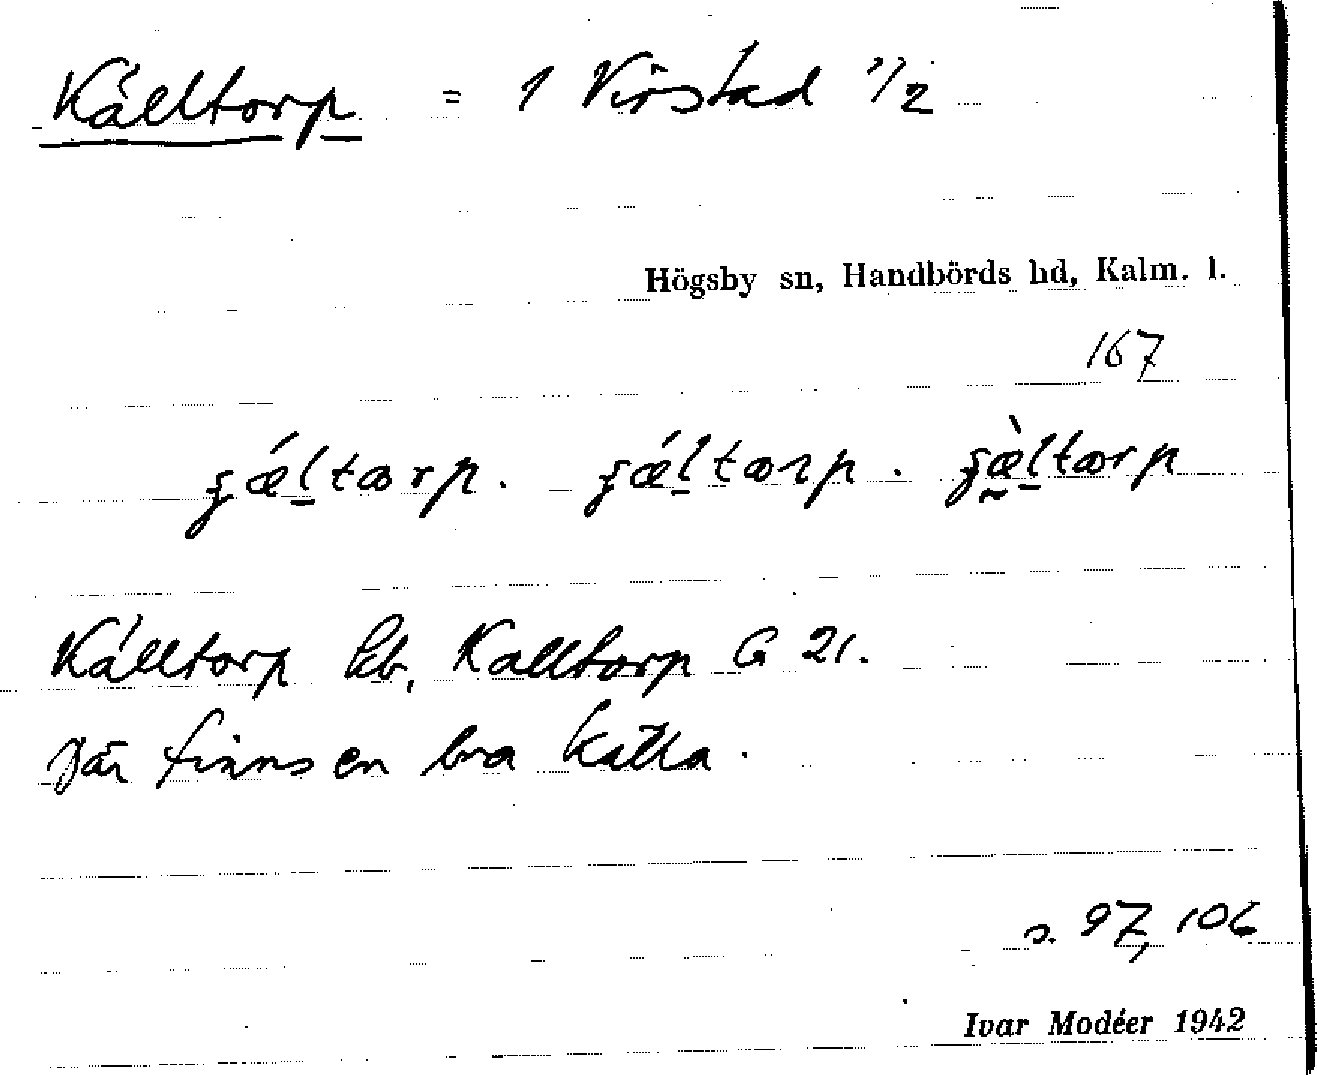 Källtorp = 1 Virstad 1/2
Högsby sn, Handbörds hd, Kalm. l.
167
Källtorp kb. Kalltorp G 21.
Där finns en bra källa.
s. 97, 106
Ivar Modéer 1942